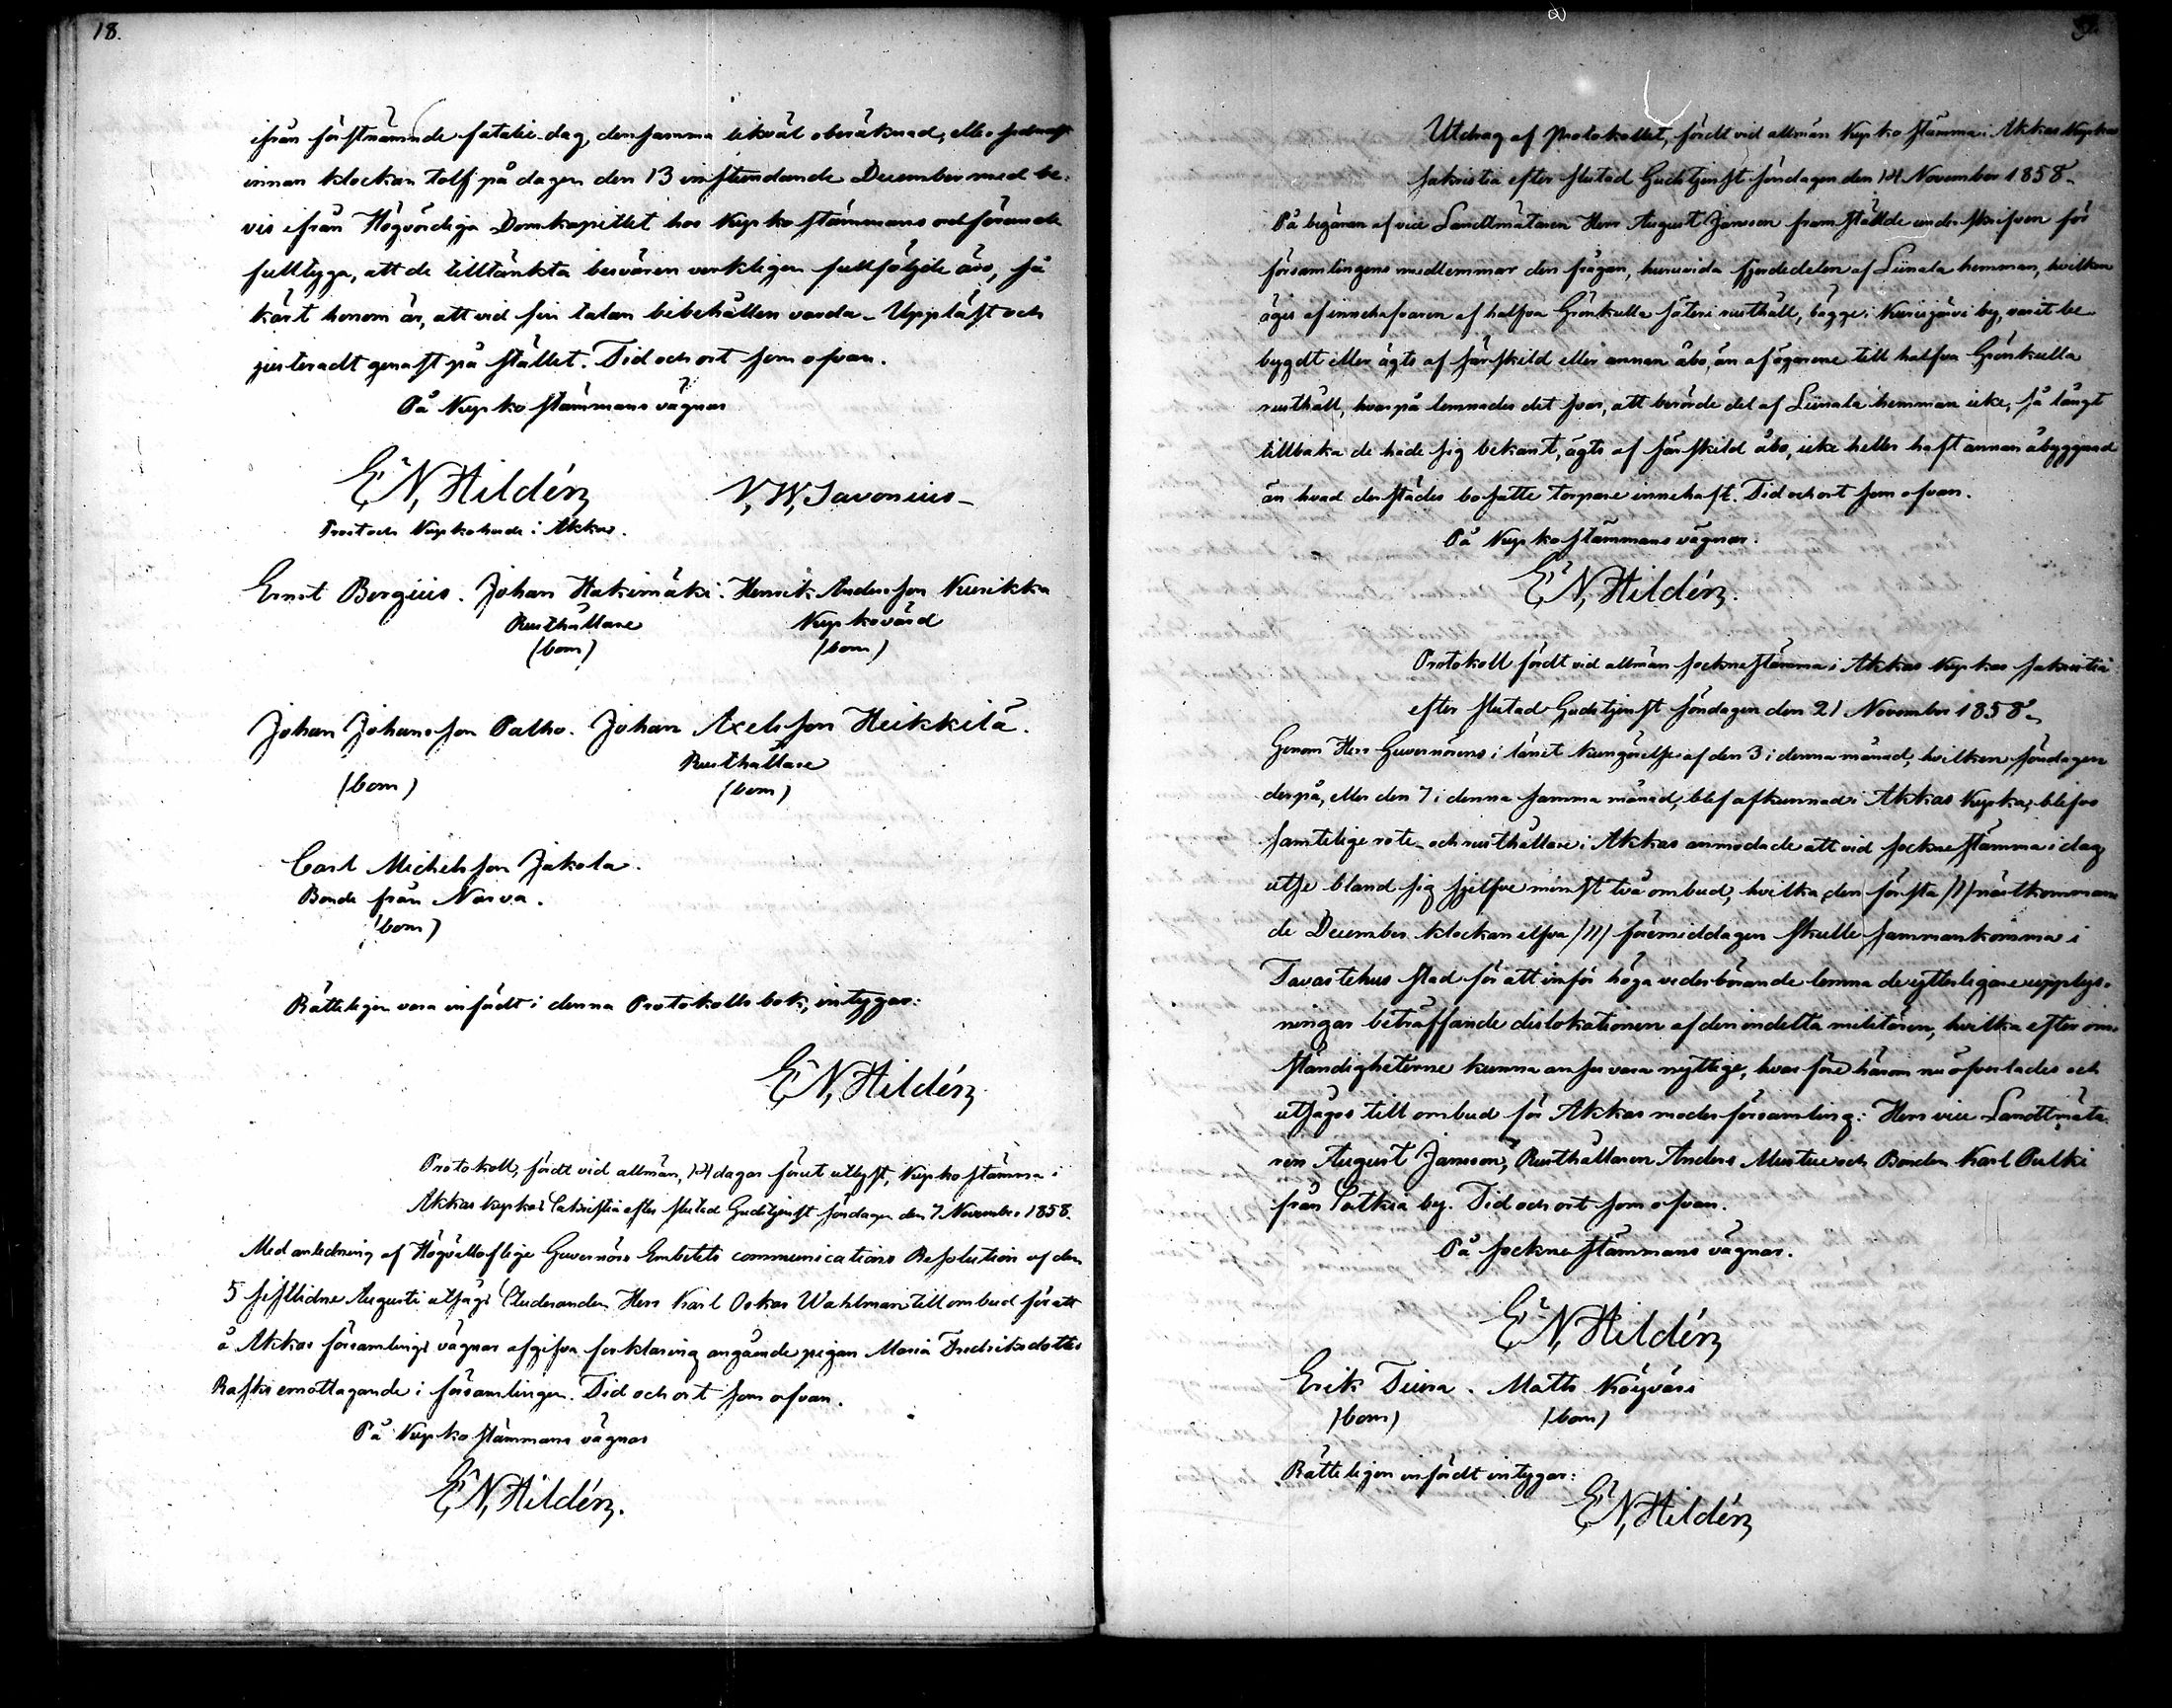 18.
ifrån förstnämnde fatalie-dag, densamma likväl oberäknad, eller sednast
innan klockan tolf på dagen den 13 instundande December med be-
vis ifrån Högvördiga Domkapitlet hos Kyrkostämmans ordförande
fulltyga, att de tilltänkta besvären verkligen fullföljde äro, så
kärt honom är, att vid sin talan bibehållen varda. Uppläst och
justeradt genast på stället. Tid och ort som ofvan.
På Kyrkostämmans vägnar
E. N. Hildén
V. W. Savonius
Prost och Kyrkoherde i Akkas.
Ernst Bergius. Johan Hakimäki. Henrik Andersson Kurikka
Rusthållare Kyrkovärd
(bom) (bom)
Johan Johansson Palho. Johan Axelsson Heikkilä.
Rusthållare
(bom) (bom)
Carl Michelsson Jakola.
Bonde från Narva.
(bom)
Rätteligen vara infördt i denna Protokolls bok, intygar:
E. N. Hildén
Protokoll, fördt vid allmän, 14 dagar förut utlyst, Kyrkostämma i
Akkas kyrkas Sakristia efter slutad Gudstjenst söndagen den 7 November 1858.
Med anledning af Högvälloflige Guvernörs Embetets communications Resolution af den
5 sistlidne Augusti utsågs Studeranden Herr Karl Oskar Wahlman till ombud för att
å Akkas församlings vägnar afgifva forklaring angående pigan Maria Fredriksdotter
Rasks emottagande i församlingen. Tid och ort som ofvan.
På Kyrkostämmans vägnar
E. N. Hildén.
Utdrag af Protokollet, fördt vid allmän Kyrkostämma i Akkas Kyrkas
sakristia efter slutad Gudstjenst söndagen den 14 November 1858.
På begäran af vice Landtmätaren Herr August Jansson framställde underskrifven för
församlingens medlemmar den frågan, huruvida fjerdedelen af Liinala hemman, hvilken
äges af innehafvaren af halfva Grönkulla säteri rusthåll, bägge i Kurisjärvi by, varit be-
bygdt eller ägts af särskild eller annan åbo, än af ägarene till halfva Grönkulla
rusthåll, hvarpå lemnades det svar, att berörde del af Liinala hemman icke, så långt
tillbaka de hade sig bekant, ägts af särskild åbo, icke heller haft annan åbyggnad
än hvad derstädes bosatte torpare innehaft. Tid och ort som ofvan.
På Kyrkostämmans vägnar.
E. N. Hildén.
Protokoll fördt vid allmän sockne stämma i Akkas Kyrkas sakristia
efter slutad Gudstjenst söndagen den 21 November 1858.
Genom Herr Guvernörens i länet Kungörelse af den 3 i denna månad, hvilken söndagen
derpå, eller den 7 i denna samma månad, blef afkunnad i Akkas Kyrka, blefvo
samtelige rote- och rusthållare i Akkas anmodade att vid sockne stämma i dag
utse bland sig sjelfve minst två ombud, hvilka den första /1/ nästkomman
de December klockan elfva /11/ föremiddagen skulle sammankomma i
Tavastehus stad för att inför höga vederbörande lemna de ytterligare upplys-
ningar beträffande dislokationen af den indelta militären, hvilka efter om-
ständigheterne kunna anses vara nyttige, hvarföre härom nu öfverlades och
utsågos till ombud för Akkas moderförsamling: Herr vice Landtmäta
ren August Jansson, Rusthållaren Anders Mustue och Bonden Karl Pulki
från Sotkia by. Tid och ort som ofvan.
På sockne stämmans vägnar.
E. N. Hildén
Erik Tiura. Matts Köyväri
(bom) (bom)
Rätteligen infördt intygar:
E. N. Hildén